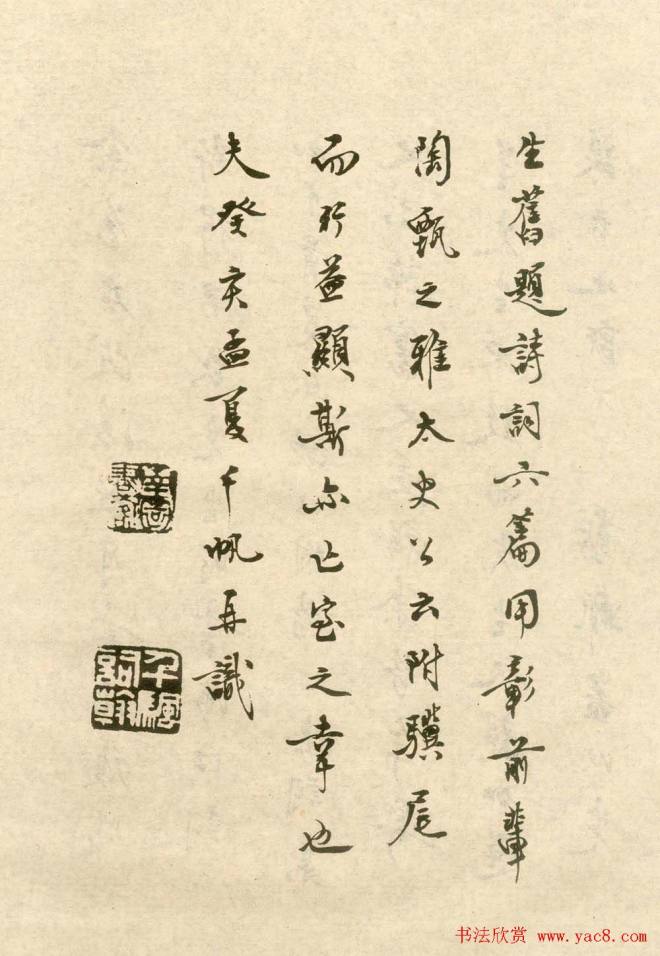 生舊題詩詞六篇用彰前輩
陶甄之雅太史公云附驥尾
而行益顯斯亦亡室之幸也
夫癸亥孟夏千帆再識
千帆詞翰
书法欣赏 www.yac8.com